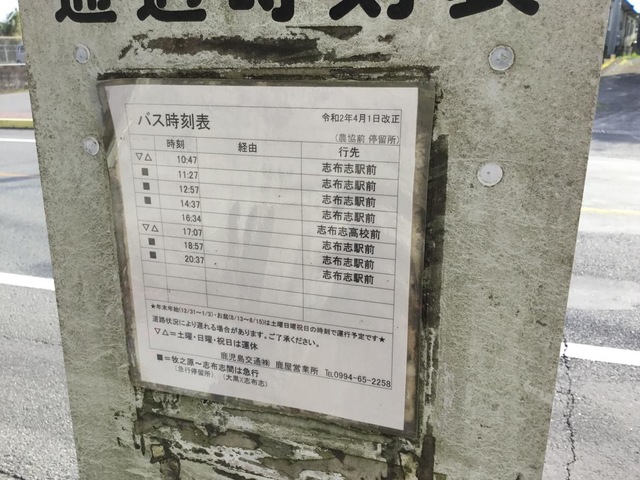 通過時刻表
バス時刻表 令和2年4月1日改正
(農協前 停留所)
時刻 経由 行先
▽△ 10:47 志布志駅前
■ 11:27 志布志駅前
■ 12:57 志布志駅前
■ 14:37 志布志駅前
16:34 志布志高校前
▽△ 17:07 志布志駅前
■ 18:57 志布志駅前
■ 20:37 志布志駅前
★年末年始(12/31~1/3)・お盆(8/13~8/15)は土曜日曜祝日の時刻で運行予定です★
道路状況により遅れる場合があります。ご了承ください。
▽△=土曜・日曜・祝日は運休
鹿児島交通㈱ 鹿屋営業所 ℡0994-65-2258
■=牧之原~志布志間は急行
(急行停留所) (大黒)(志布志)